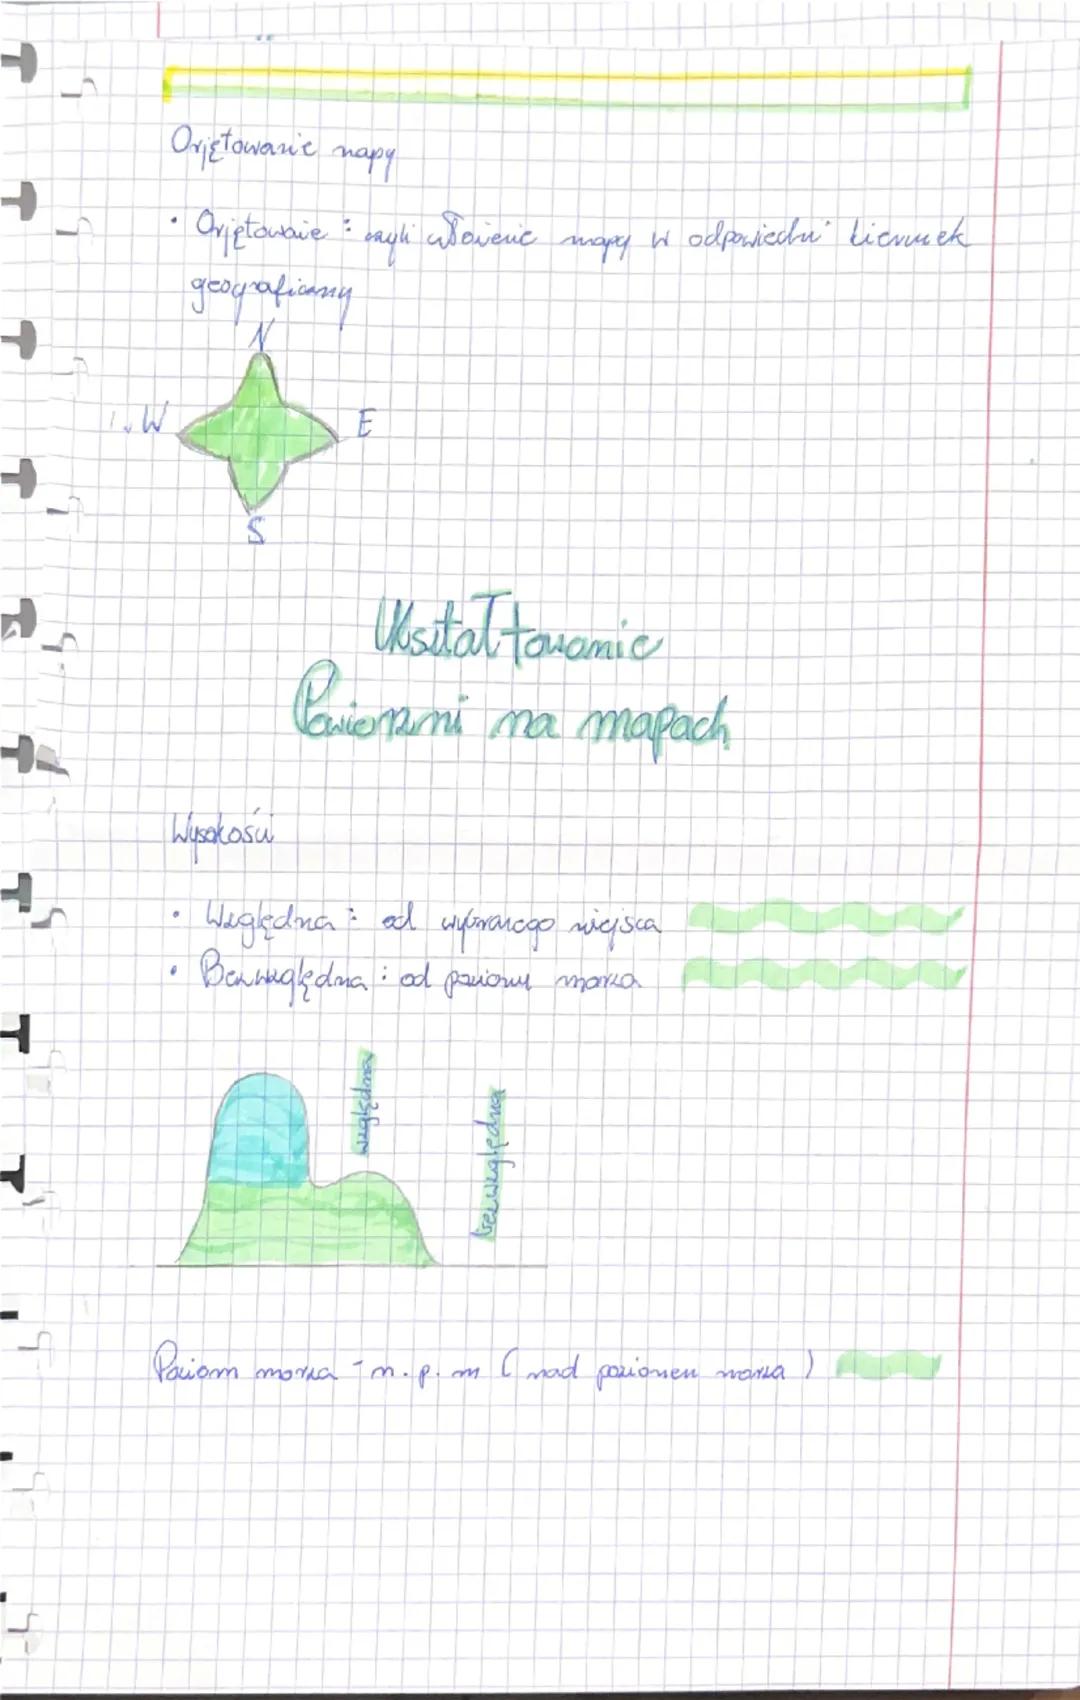 Orjętowanie mapy
• Orjętowaie : czyli ułożenie mapy w odpowiedni kierunek
geograficzny
N
W E
S
Ukształtowanie
Powierzni na mapach
Wysokości
• Względna : od wybranego miejsca
• Bezwzględna : od poziomu morza
względna
bezwzględna
Poziom morza - n.p.m (nad poziomem morza)